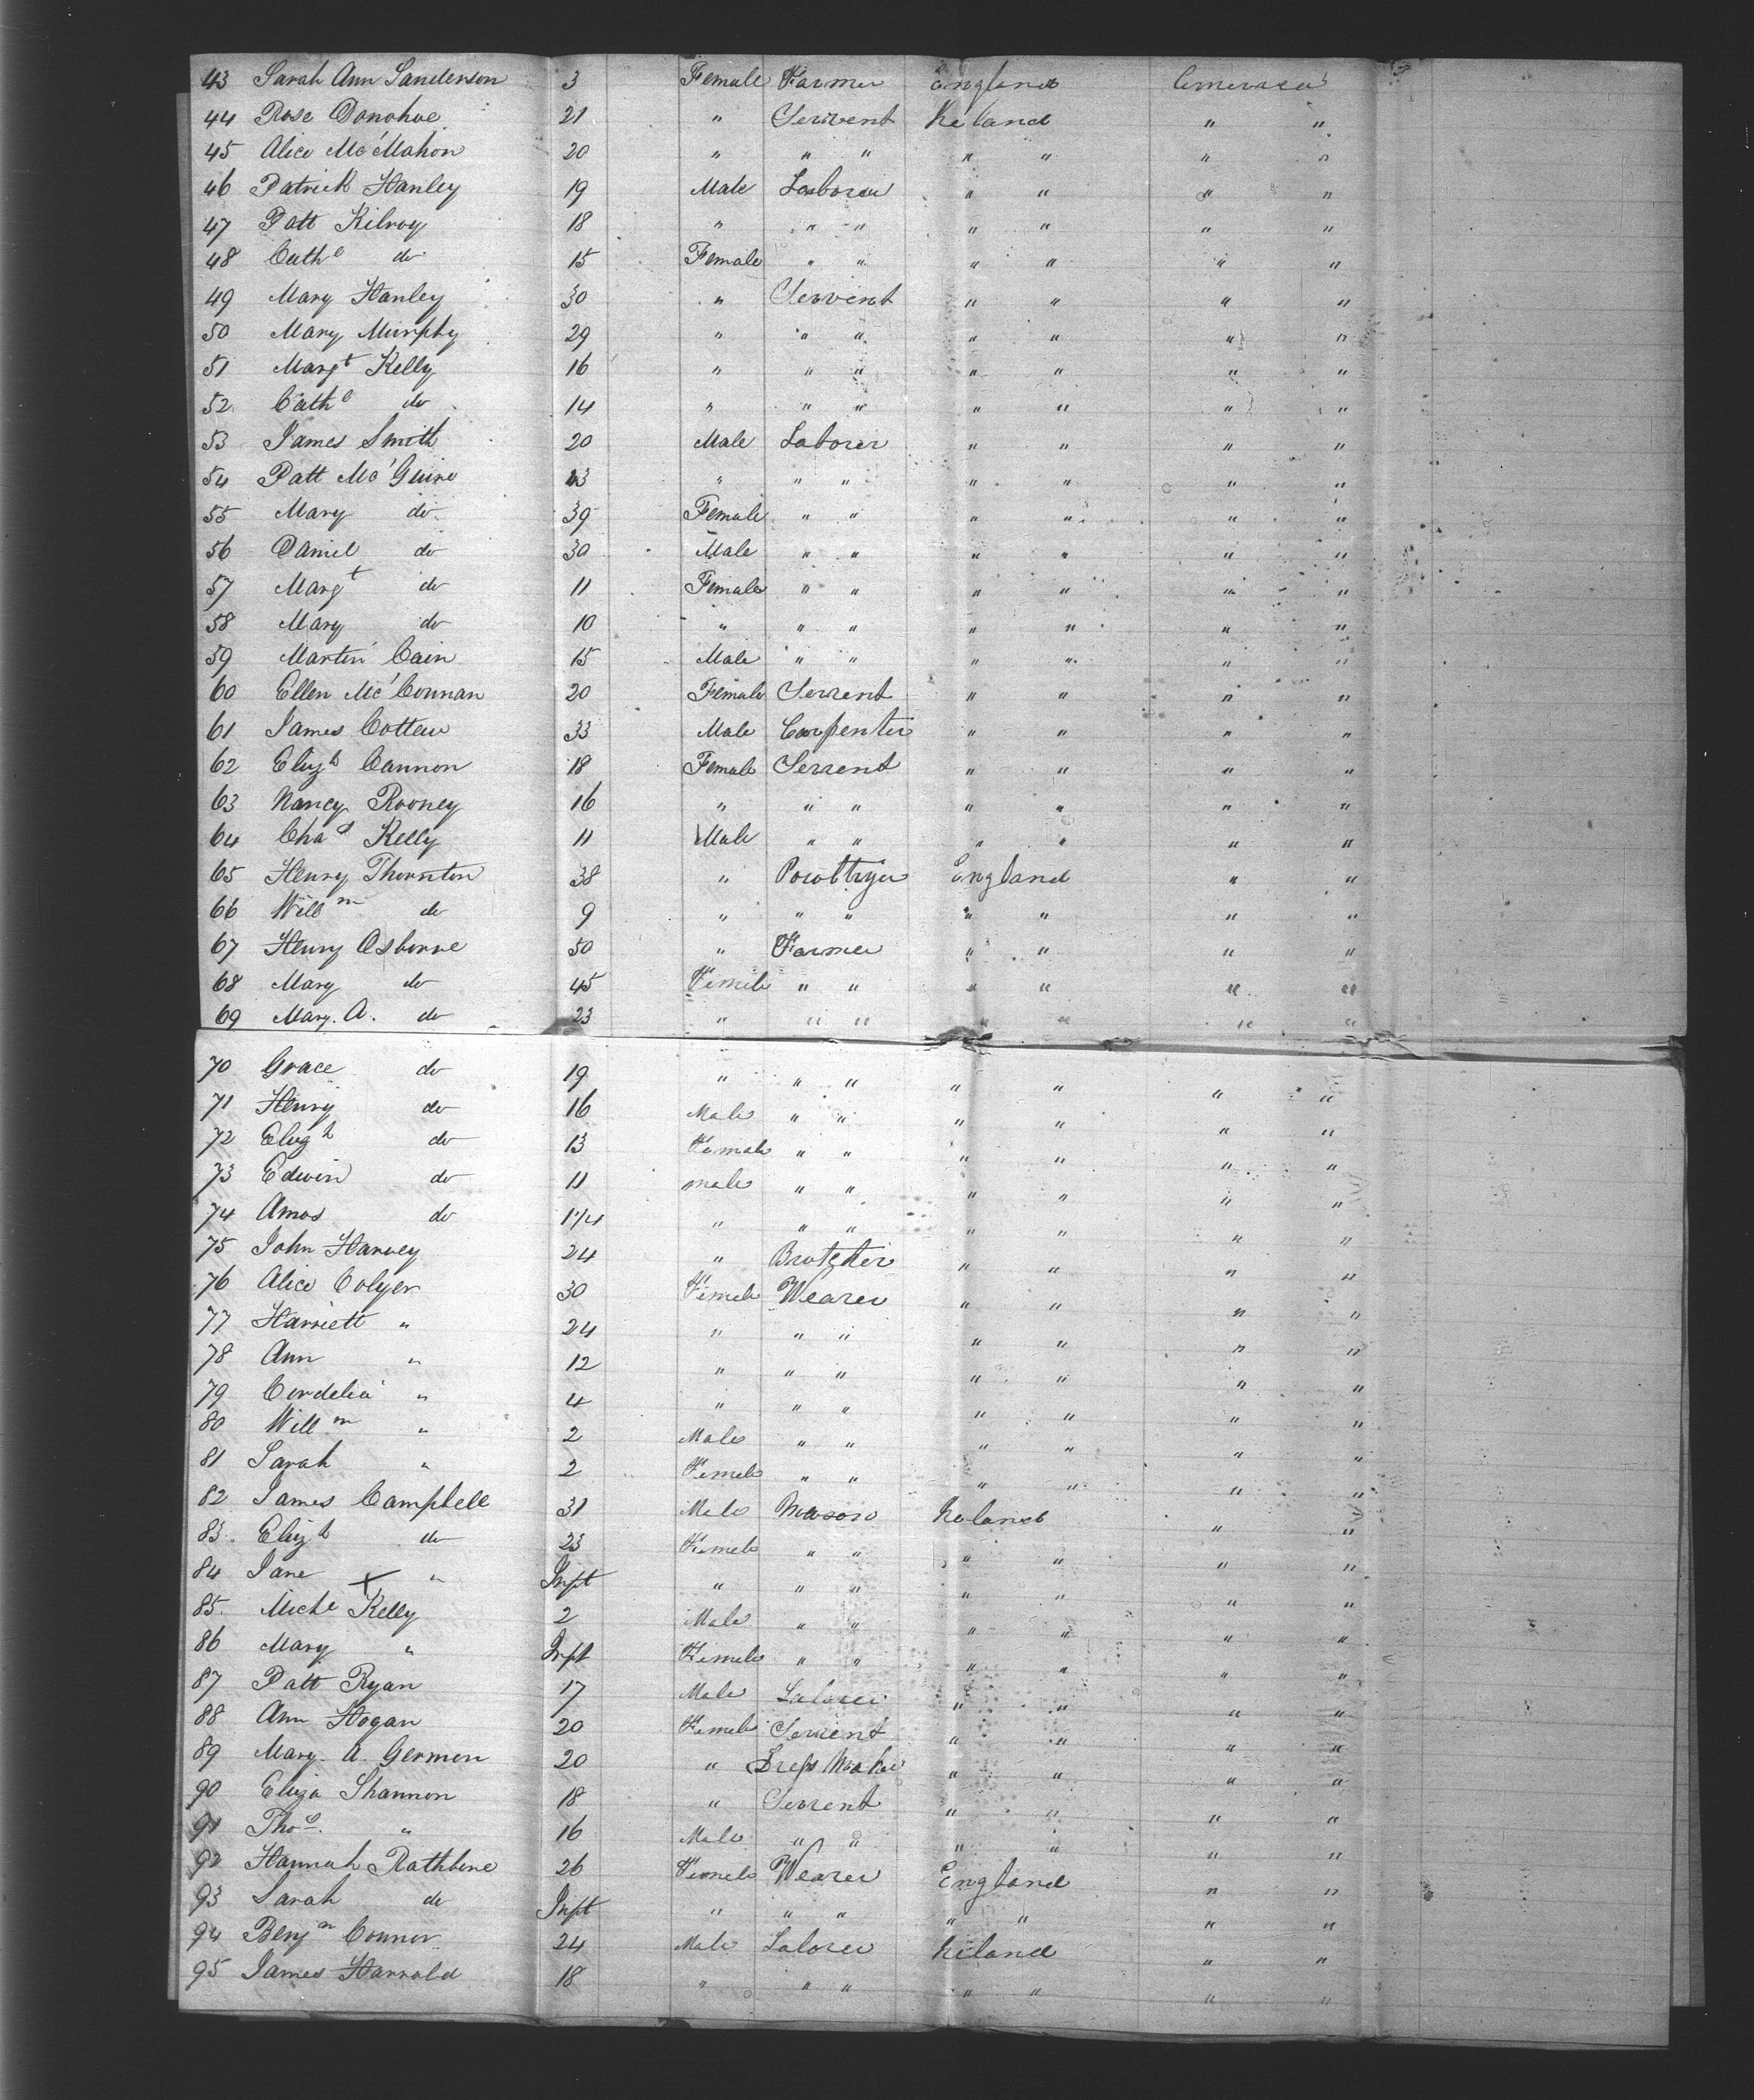 43 Sarah Ann Sanderson 3 Female Farmer England America
44 Rose Donohoe 21 " Servent Ireland " "
45 Alice McMahon 20 " " " " " " "
46 Patrick Hanley 19 Male Laborer " " " "
47 Patt Kilroy 18 " " " " " " "
48 Cathe do 15 Female " " " " " "
49 Mary Hanley 30 " Servent " " " "
50 Mary Murphy 29 " " " " " " "
51 Margt Kelly 16 " " " " " " "
52 Cathe do 14 " " " " " " "
53 James Smith 20 Male Laborer " " " "
54 Patt McGuire " " " " " " "
55 Mary do 39 Female " " " " " "
56 Daniel do 30 Male " " " " " "
57 Margt do 11 Female " " " " " "
58 Mary do 10 " " " " " " "
59 Martin Cain 15 Male " " " " " "
60 Ellen McConnan 20 Female Servent " " " "
61 James Cotten 33 Male Carpenter " " " "
62 Elizh Cannon 18 Female Servent " " " "
63 Nancy Rooney 16 " " " " " " "
64 Chas Kelly 11 Male " " " " " "
65 Henry Thornton 38 " England " "
66 Willm do 9 " " " " " " "
67 Henry Osborne 50 " Farmer " " " "
68 Mary do 45 Female " " " " " "
69 Mary. A. do 23 " " " " " " "
70 Grace do 19 " " " " " " "
71 Henry do 16 Male " " " " " "
72 Elizh do 13 Female " " " " " "
73 Edwin do 11 male " " " " " "
74 Amos do 1 1/4 " " " " " " "
75 John Harvey 24 " Brutcher " " " "
76 Alice Colyer 30 Female Weaver " " " "
77 Harriett " 24 " " " " " " "
78 Ann " 12 " " " " " " "
79 Cordelia " 4 " " " " " " "
80 Willm " 2 Male " " " " " "
81 Sarah " 2 Female " " " " " "
82 James Campbell 31 Male Mason Ireland " "
83 Elizh do 23 Female " " " " " "
84 Jane X " Inft " " " " " " "
85 Michl Kelly 2 Male " " " " " "
86 Mary " Inft Female " " " " " "
87 Patt Ryan 17 Male Laborer " " " "
88 Ann Hogan 20 Female Servent " " " "
89 Mary. A. Germon 20 " Dress Maker " " " "
90 Eliza Shannon 18 " Servent " " " "
91 Thos. " 16 Male " " " " " "
92 Hannah Rathbone 26 Female Weaver England " "
93 Sarah do Inft " " " " " " "
94 Benjn Connor 24 Male Laborer Ireland " "
95 James Harrold 18 " " " " " " "